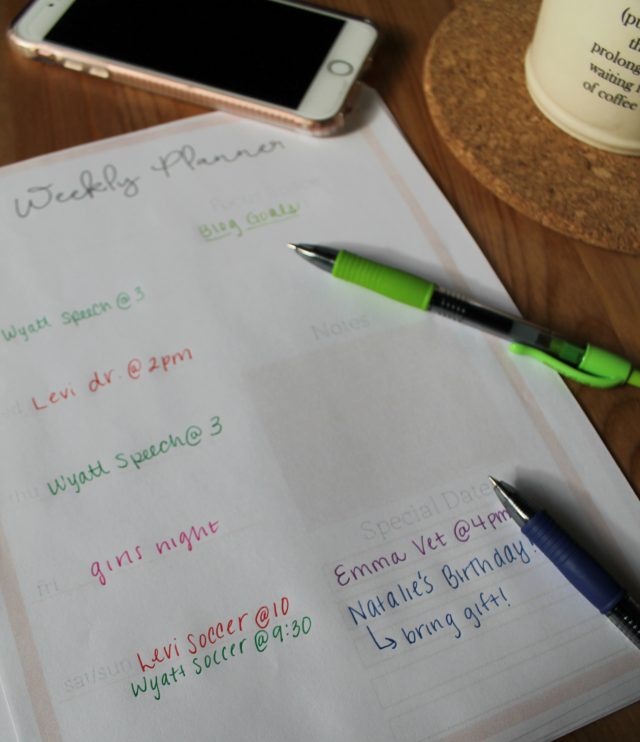 Weekly Planner
Blog Goals
Wyatt Speech @ 3
Notes
Levi dr. @ 2pm
thu
Wyatt Speech @ 3
Special Dates
fri
girls night
Emma Vet @ 4pm
Natalie's Birthday!
↳ bring gift!
sat/sun
Levi Soccer @ 10
Wyatt Soccer @ 9:30
prolong
waiting
of coffee